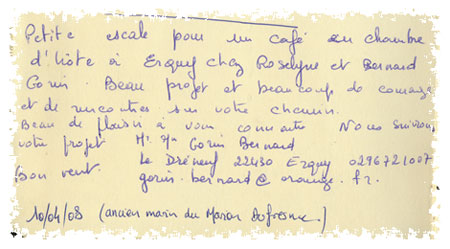 Petite escale pour un café en chambre
d'hôte à Erquy chez Roselyne et Bernard
Gorin. Beau projet et beaucoup de courage
et de rencontres sur votre chemin.
Beau de plaisir à vous connaitre Nous suivrons
votre projet Mr Mme Gorin Bernard
Le Dréneuf 22430 Erquy 0296721007
Bon vent. gorin.bernard@orange.fr.
10/04/08 (ancien marin du Marion Dufresne.)